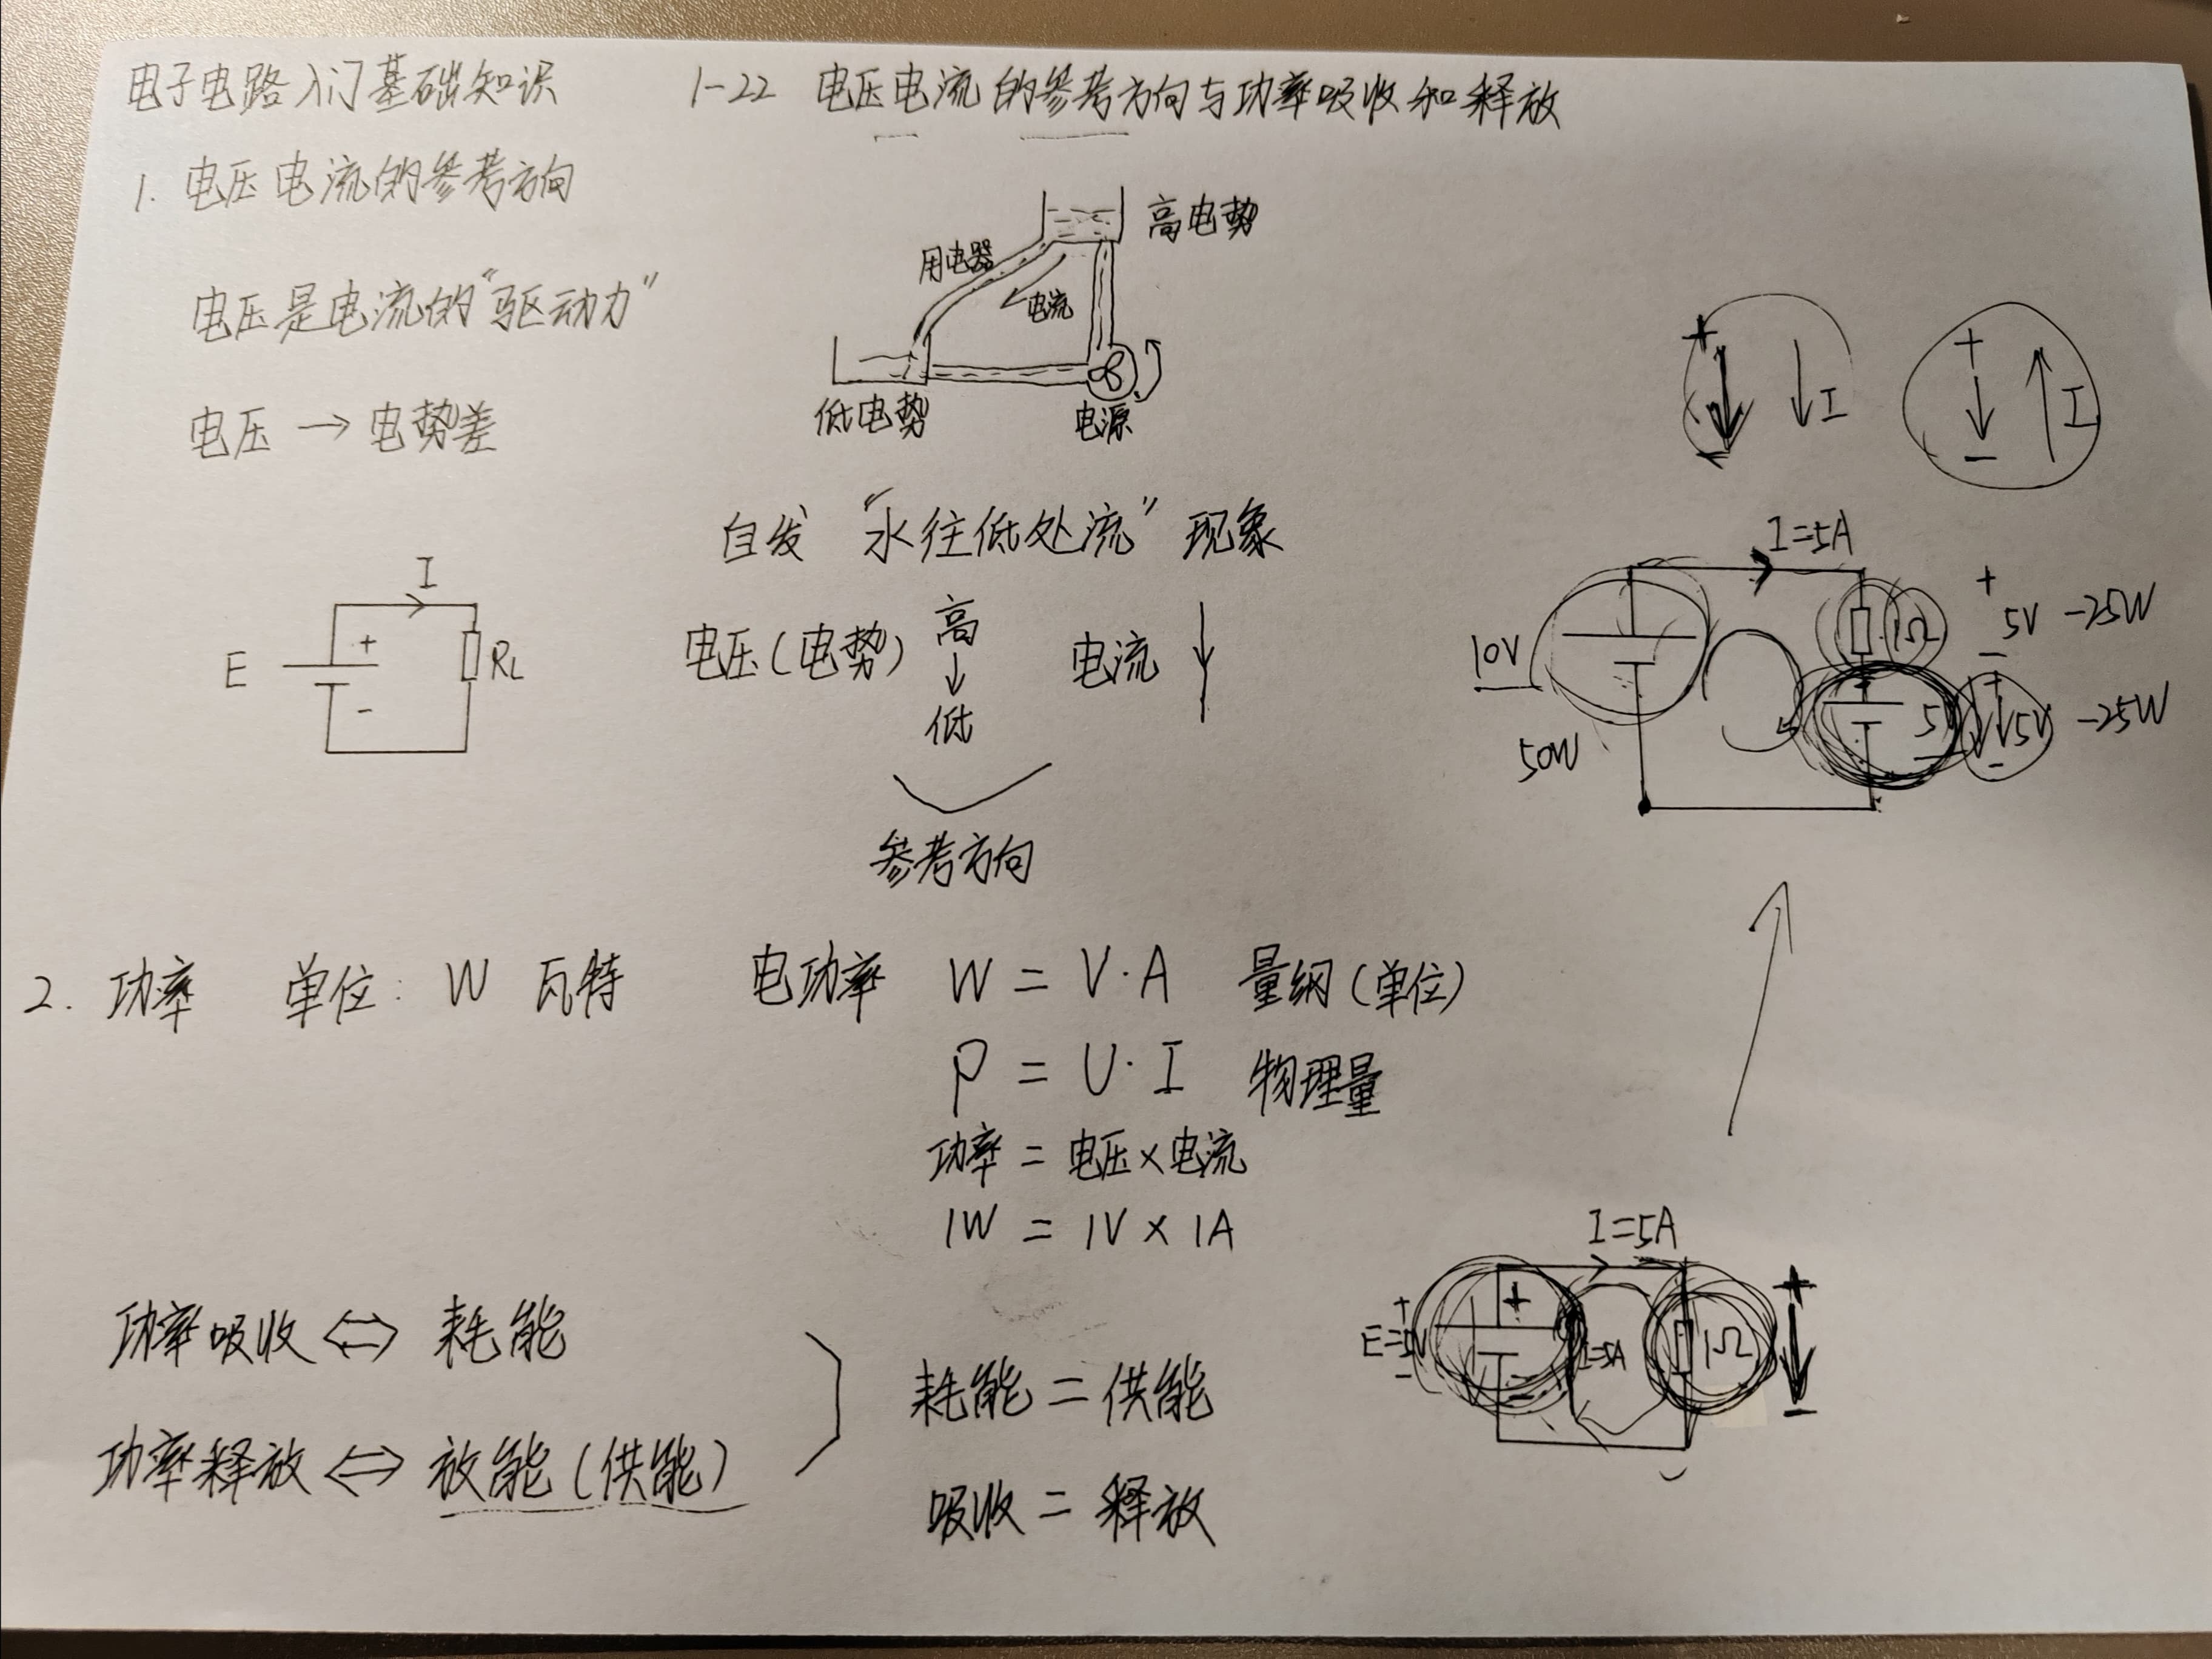 电子电路入门基础知识 1-22 电压电流的参考方向与功率吸收和释放
1. 电压电流的参考方向
电压是电流的“驱动力”
电压 → 电势差
高电势
用电器
电流
低电势
电源
自发 “水往低处流” 现象
电压(电势) 高 ↓ 低
电流 ↓
参考方向
I
E
+
-
RL
+
-
I
+
-
I
I=5A
10V
50W
1Ω
+
5V -25W
-
5V
+
5V -25W
-
2. 功率 单位: W 瓦特 电功率 W = V·A 量纲(单位)
P = U·I 物理量
功率 = 电压×电流
1W = 1V × 1A
功率吸收 ⇔ 耗能
功率释放 ⇔ 放能(供能)
耗能 = 供能
吸收 = 释放
I=5A
+
E=5V
-
+
-
I=5A
1Ω
+
-